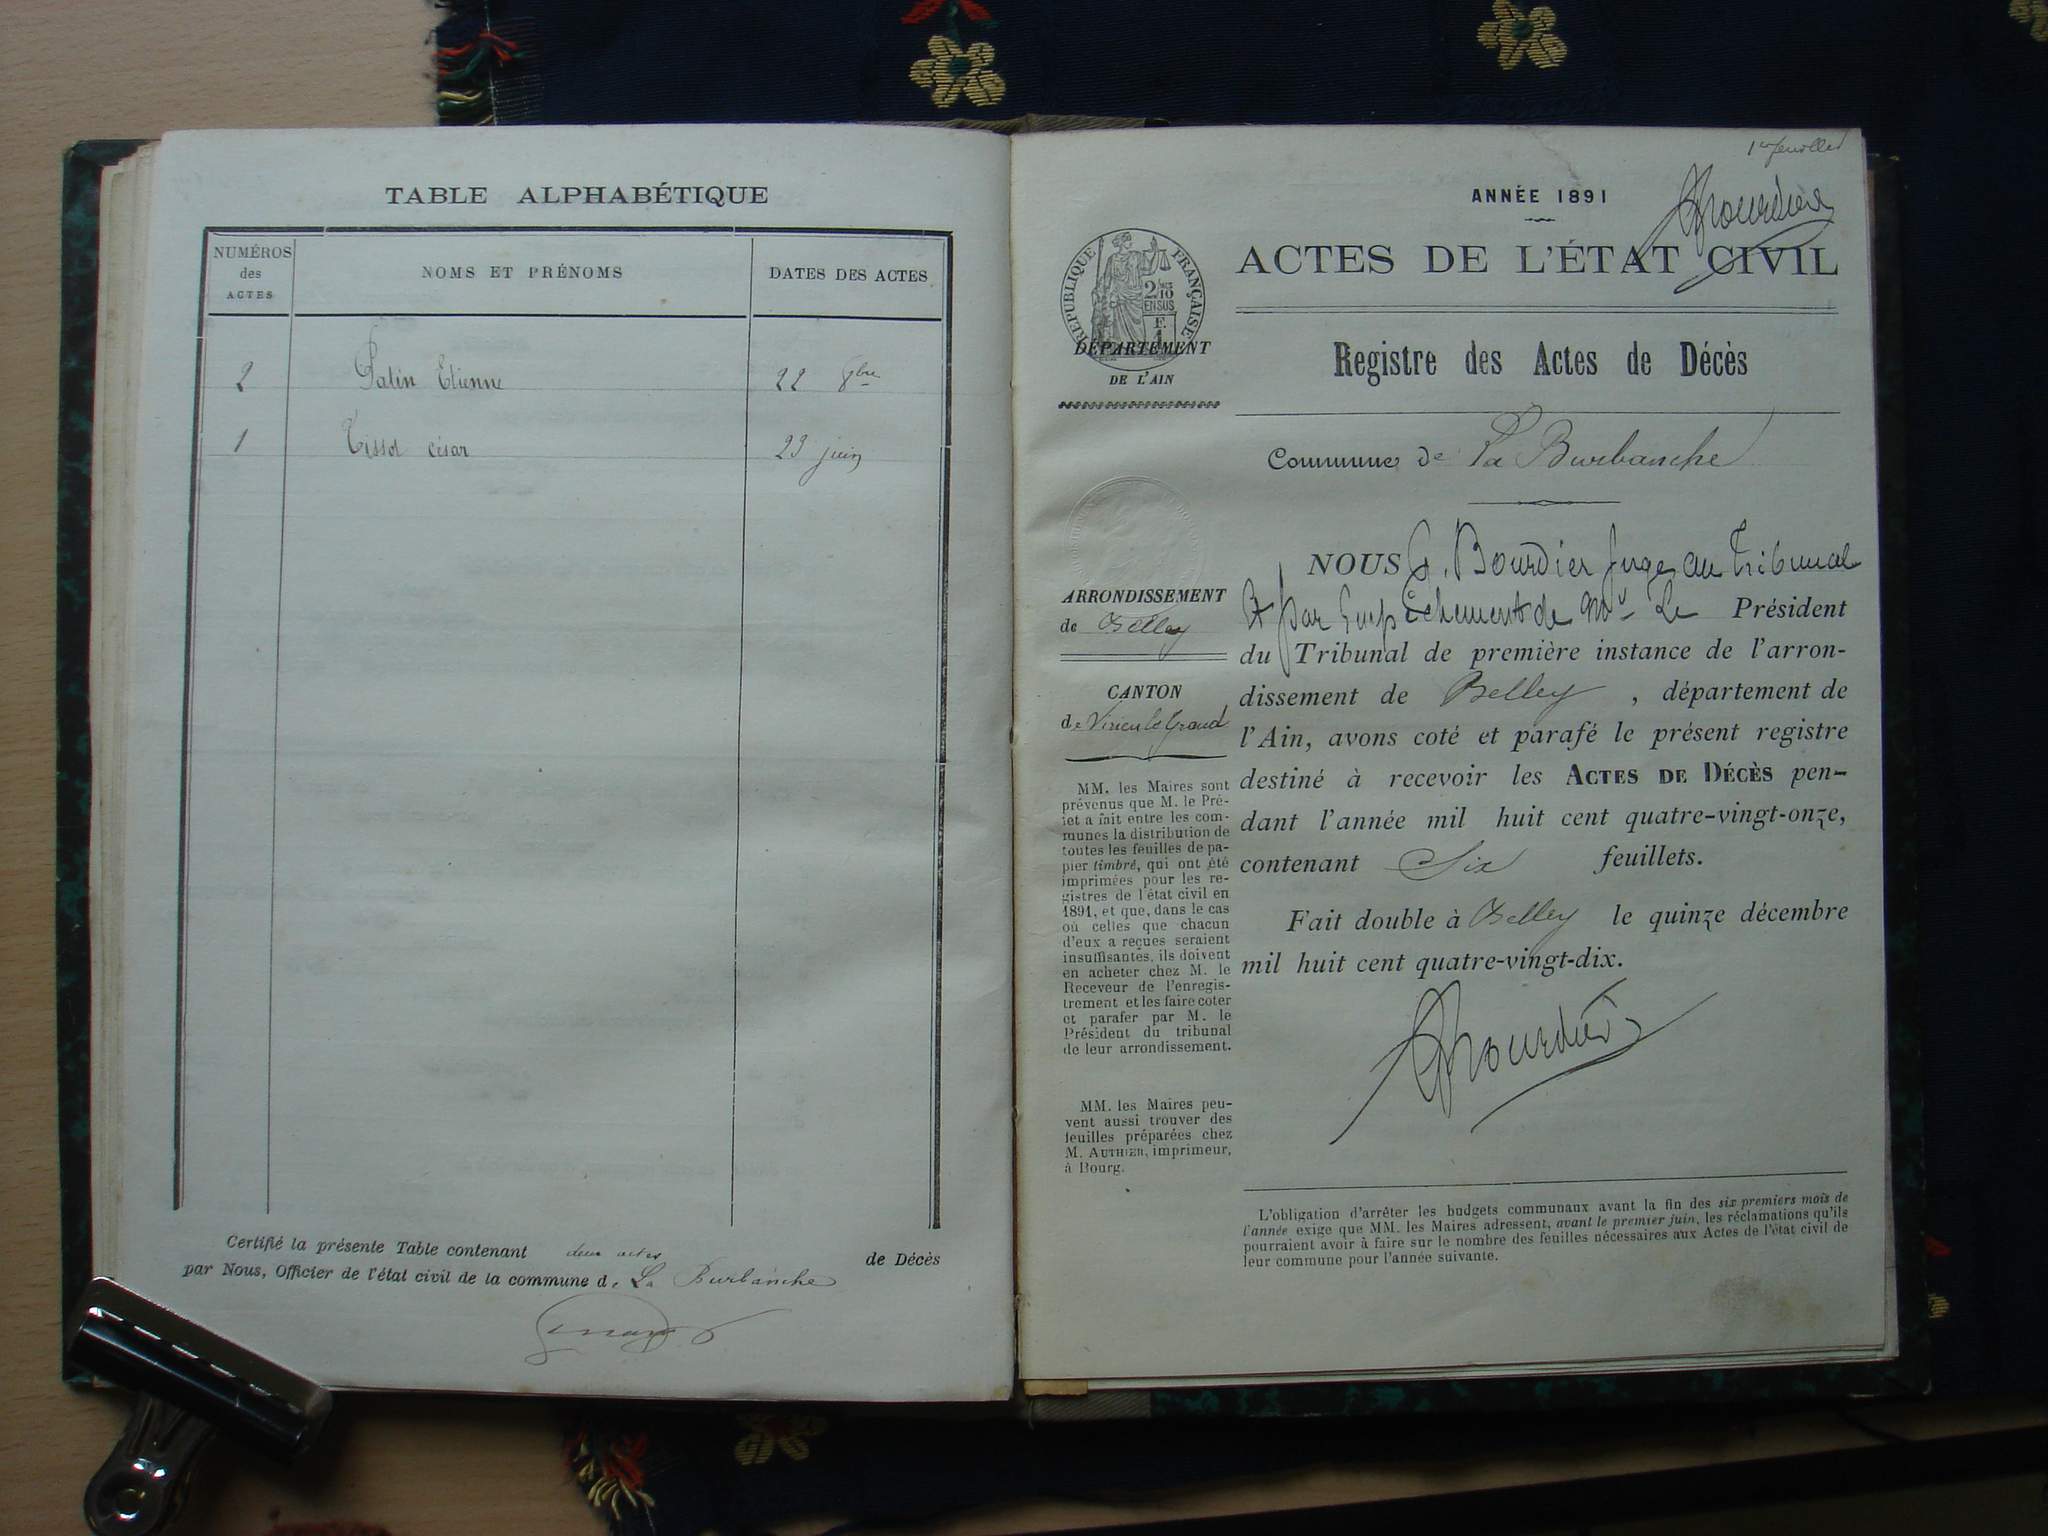 TABLE ALPHABÉTIQUE
NUMÉROS
des
ACTES
NOMS ET PRÉNOMS
DATES DES ACTES
2 Patin Etienne 22 8bre
1 Tissot César 23 juin
Certifié la présente Table contenant deux actes de Décès
par Nous, Officier de l'état civil de la commune de La Burbanche
1er feuillet
ANNÉE 1891
RÉPUBLIQUE FRANÇAISE
2/10
EN SUS
F.
1
ACTES DE L'ÉTAT CIVIL
DÉPARTEMENT
DE L'AIN
Registre des Actes de Décès
Commune de La Burbanche
ARRONDISSEMENT
de Belley
CANTON
de Virieu le Grand
MM. les Maires sont
prévenus que M. le Pré-
fet a fait entre les com-
munes la distribution de
toutes les feuilles de pa-
pier timbré, qui ont été
imprimées pour les re-
gistres de l'état civil en
1891, et que, dans le cas
où celles que chacun
d'eux a reçues seraient
insuffisantes, ils doivent
en acheter chez M. le
Receveur de l'enregis-
trement et les faire coter
et parafer par M. le
Président du tribunal
de leur arrondissement.
MM. les Maires peu-
vent aussi trouver des
feuilles préparées chez
M. AUTHIER, imprimeur,
à Bourg.
NOUS G. Bourdier Juge au Tribunal
et par Empêchement de Mr Le Président
du Tribunal de première instance de l'arron-
dissement de Belley, département de
l'Ain, avons coté et parafé le présent registre
destiné à recevoir les ACTES DE DÉCÈS pen-
dant l'année mil huit cent quatre-vingt-onze,
contenant Six feuillets.
Fait double à Belley le quinze décembre
mil huit cent quatre-vingt-dix.
GBourdier
L'obligation d'arrêter les budgets communaux avant la fin des six premiers mois de
l'année exige que MM. les Maires adressent, avant le premier juin, les réclamations qu'ils
pourraient avoir à faire sur le nombre des feuilles nécessaires aux Actes de l'état civil de
leur commune pour l'année suivante.